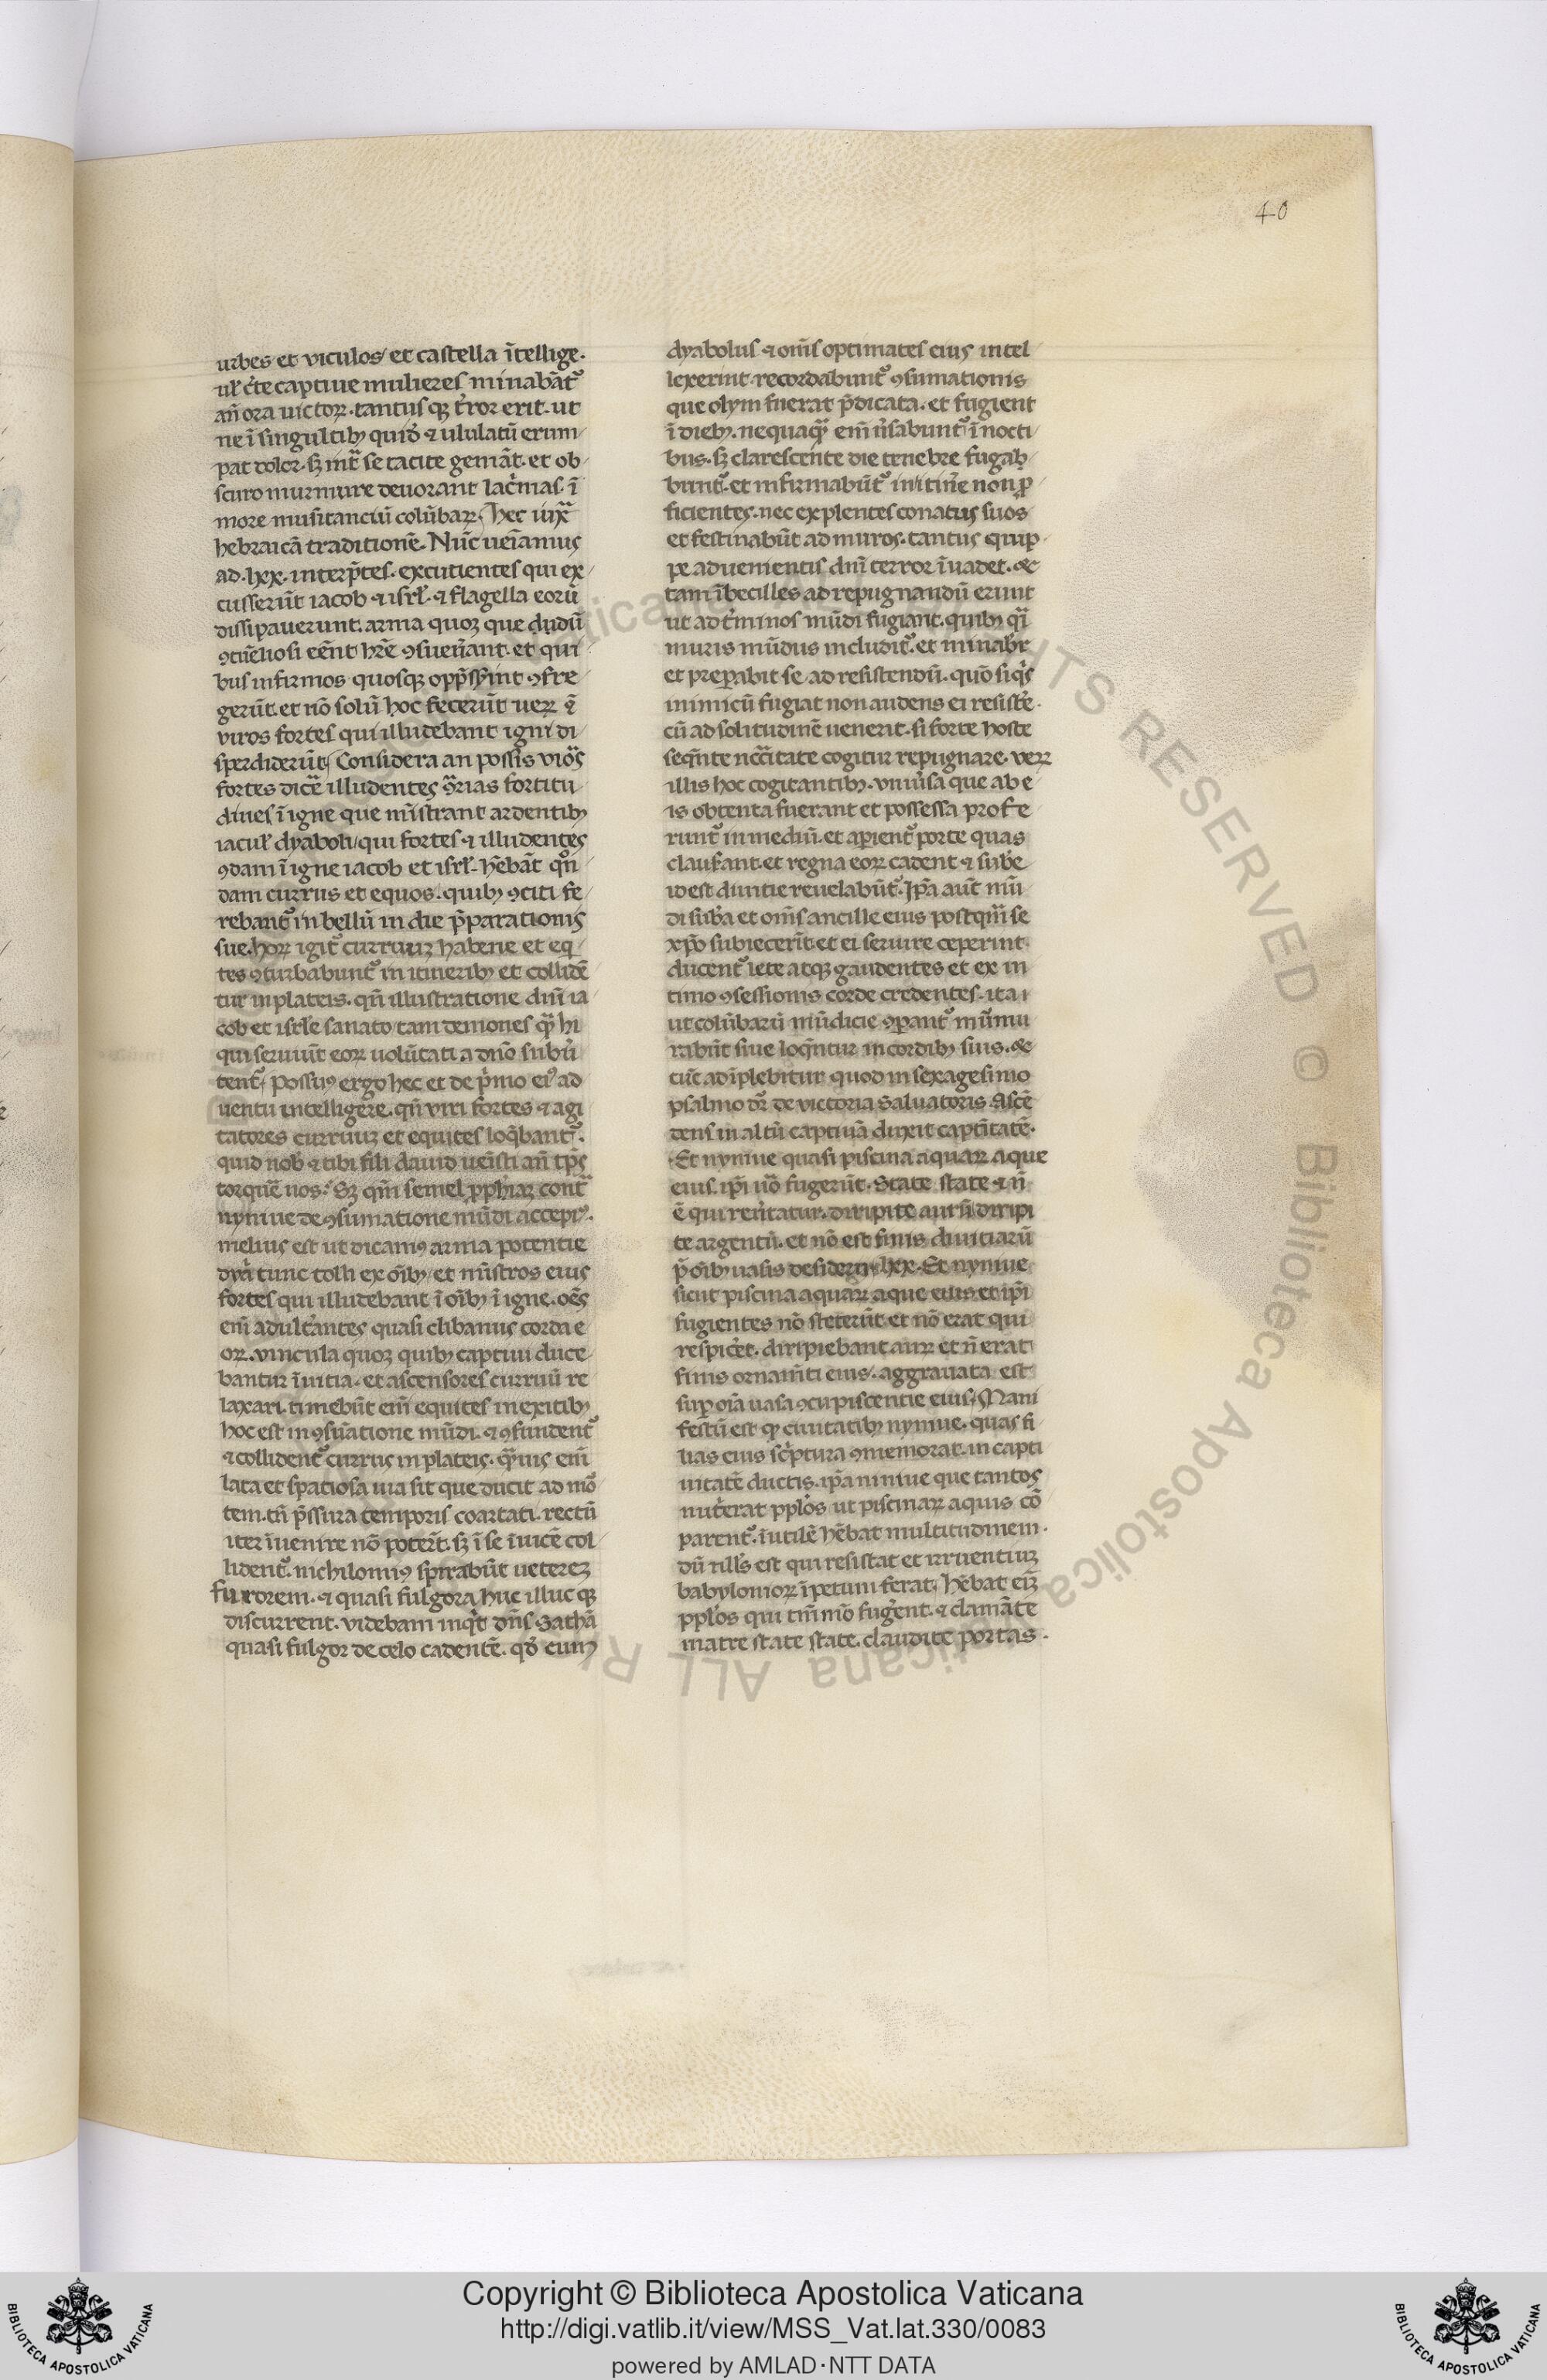 40
urbes et viculos et castella ĩtellige.
ul' c̃te captiue mulieres minabãt᷑
añ ora uictoꝝ. tantus qꝫ t̃ror erit. ut
ne ĩ singultibꝫ quid' ⁊ ululatũ erum
pat dolor. sꝫ int̃ se tacite gemãt. et ob
scuro murmure deuorant lac̃mas. ĩ
more musitanciũ colũbaꝝ. Hec iux̃
hebraicã traditionẽ. Nũc ueĩamus
ad .lxx. interp̃tes. excutientes qui ex
cusserũt iacob ⁊ isrl'. ⁊ flagella eorũ
dissipauerunt. arma quoꝫ que dudũ
ꝯtũeliosi eẽnt hr̃e ꝯsueũant. et qui
bus infirmos quosqꝫ opp̃sserint ꝯfre
gerũt. et nõ solũ hoc fecerũt ueꝝ ẽ
viros fortes qui illudebant igni di
sperdiderũt. Considera an possis vios
fortes dic̃e illudentes ꝯ̃rias fortitu
dines ĩ igne que mĩstrant ardentibꝫ
iacul' dyaboli qui fortes ⁊ illudentes
ꝯdam ĩ igne iacob et isrl'. hẽbãt qͦn
dam currus et equos. quibꝫ ꝯciti fe
rebant᷑ in bellũ in die p̃parationis
sue. hoꝝ igit᷑ curruuꝫ habene et eq
tes ꝯturbabunt᷑ in itineribꝫ et collidẽ
tur in plateis. qñ illustratione dñi ia
cob et isrl'e sanato tam demones qꝫ̃ hi
qui seruiũt eoꝝ uolũtati a dño subũ
tent᷑. Possumꝰ ergo hec et de p̃mo eiꝰ ad
uentu intelligere. qñ viri fortes ⁊ agi
tatores curruuꝫ et equites loq̃bant᷑.
quid nob' ⁊ tibi fili dauid ueĩsti añ tp̃s
torquẽ nos. Sꝫ qm̃ semel ꝓphiaꝫ cont̃
nyniue de ꝯsumatione mũdi accepiꝰ.
melius est ut dicamꝰ arma potentie
dya' tunc tolli ex oĩbꝫ et mĩstros eius
fortes qui illudebant ĩ oĩbꝫ ĩ igne. oẽs
eñi adult̃antes quasi clibanus corda e
oꝝ. vincula quoꝫ quibꝫ captiui duce
bantur ĩuitia. et ascensores curruũ re
laxari. timebũt eñi equites in exitibꝫ
hoc est in ꝯsũatione mũdi. ⁊ ꝯfundent᷑
⁊ collident᷑ currus in plateis. qꝫ̃uis eñi
lata et spatiosa uia sit que ducit ad mõ
tem. tñ p̃ssura temporis coartati. rectũ
iter ĩuenire nõ poterũt. sꝫ ĩ se ĩuicẽ col
lident᷑. nichilominꝰ spirabũt uetereꝫ
furorem. ⁊ quasi fulgora huc illuc qꝫ
discurrent. videbam inqͥt dñs Sathã
quasi fulgor de celo cadentẽ. qd' cum
dyabolus ⁊ om̃s optimates eius intel
lexerint. recordabunt᷑ ꝯsumationis
que olym fuerat p̃dicata. et fugient
ĩ diebꝫ. nequaqꝫ̃ eñi ũsabunt᷑ ĩ nocti
bus. sꝫ clarescente die tenebre fugab
bunt᷑. et infirmabũt᷑ in itiñe non ꝓ
ficientes. nec explentes conatus suos
et festinabũt ad muros. tantus quip
pe aduenientis dñi terror ĩuadet. &
tam ĩbecilles ad repugnandũ erunt
ut ad t̃minos mũdi fugiant. quibꝫ qͣi
muris mũdus includit᷑. et minabr
et preꝑabit se ad resistendũ. quõ siqͥs
inimicũ fugiat non audens ei resist̃e.
cũ ad solitudinẽ uenerit. si forte hoste
seqñte nc̃citate cogitur repugnare. veꝝ
illis hoc cogitantibꝫ. vniũsa que ab e
is obtenta fuerant et possessa profe
runt᷑ in mediũ. et aꝑient᷑ porte quas
clauserant. et regna eoꝝ cadent ⁊ sub'e
id est diuitie reuelabũt᷑. Ip̃a aut̃ mũ
di sub'a et om̃s ancille eius postqͣm se
xp̃o subiecerĩt et ei seruire ceperint.
ducent᷑ lete atqꝫ gaudentes et ex in
timo ꝯsessionis corde credentes. ita i
ut colũbarũ mũdicie ꝯꝑant᷑ mũmu
rabũt siue loqñtur in cordibꝫ suis. &
tũc adĩplebitur quod in sexagesimo
psalmo dr̃ de victoria Saluatoris Ascẽ
dens in altũ captiuã duxit captĩtatẽ.
Et nyniue quasi piscina aquaꝝ aque
eius. ip̃i uõ fugerũt. State state ⁊ ñ
ẽ qui reũtatur. diripite aurũ diripi
te argentũ. et nõ est finis diuitiarũ
p̃ oĩbꝫ uasis desiderii. lxx. Et nyniue
sicut piscina aquaꝝ aque eius et ip̃i
fugientes nõ steterũt et nõ erat qui
respic̃et. diripiebant auꝝ et ñ erat
finis ornam̃ti eius. aggrauata est
suꝑ oĩa uasa ꝯcupiscentie eius. Mani
festũ est qꝫ ciuitatibꝫ nyniue. quas fi
lias eius sc̃ptura ꝯmemorat. in capti
uitatẽ ductis. ip̃a niniue que tantos
nut̃erat pplo's ut piscinaꝝ aquis cõ
parent᷑. ĩutilẽ hẽbat multitudinem.
dũ nll's est qui resistat et irruentiuꝫ
babylonioꝝ ĩpetum ferat. Hẽbat eĩꝫ
pplo's qui tm̃mõ fug̃ent. ⁊ clamãte
matre state state. claudite portas.
Copyright © Biblioteca Apostolica Vaticana
http://digi.vatlib.it/view/MSS_Vat.lat.330/0083
powered by AMLAD·NTT DATA
BIBLIOTECA APOSTOLICA VATICANA
BIBLIOTECA APOSTOLICA VATICANA